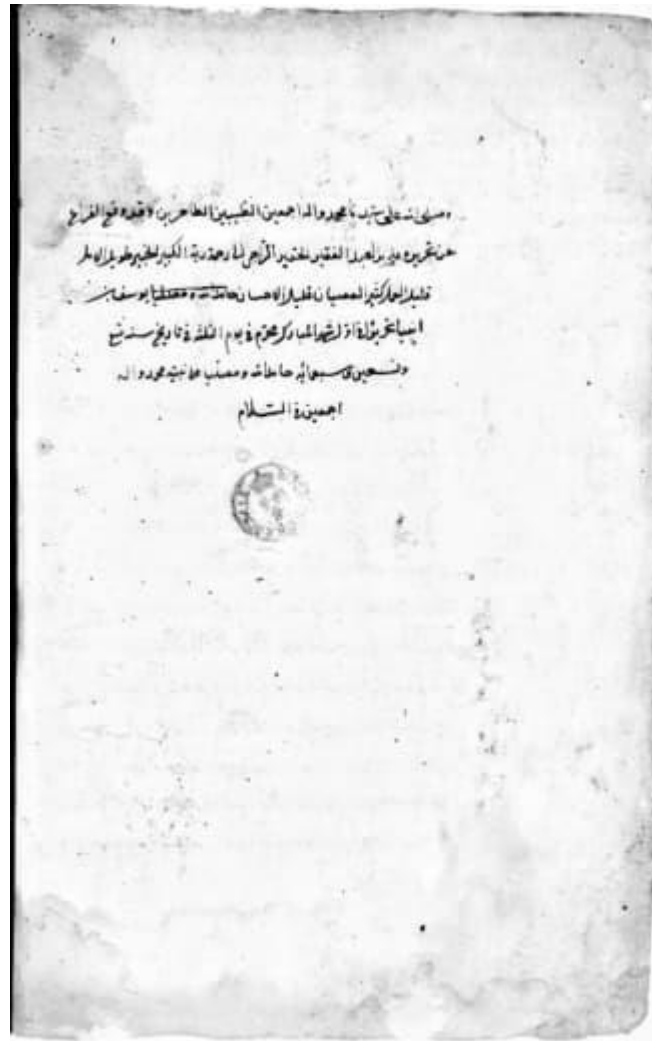 وصلى الله على سيدنا محمد واله اجمعين الطيبين الطاهرين وقد وقع الفراغ
من تحريره على يد العبد الفقير الحقير الراجي الى رحمة ربه الكبير الخبير طويل الامل
قليل العمل كثير العصيان قليل الاحسان حامدا لله ومصليا يوسف بن
في اوائل شهر المبارك محرم في يوم الثلثا في تاريخ سنة تسع
وتسعين و سبعمائة حامدا لله ومصليا على نبيه محمد واله
اجمعين والسلام